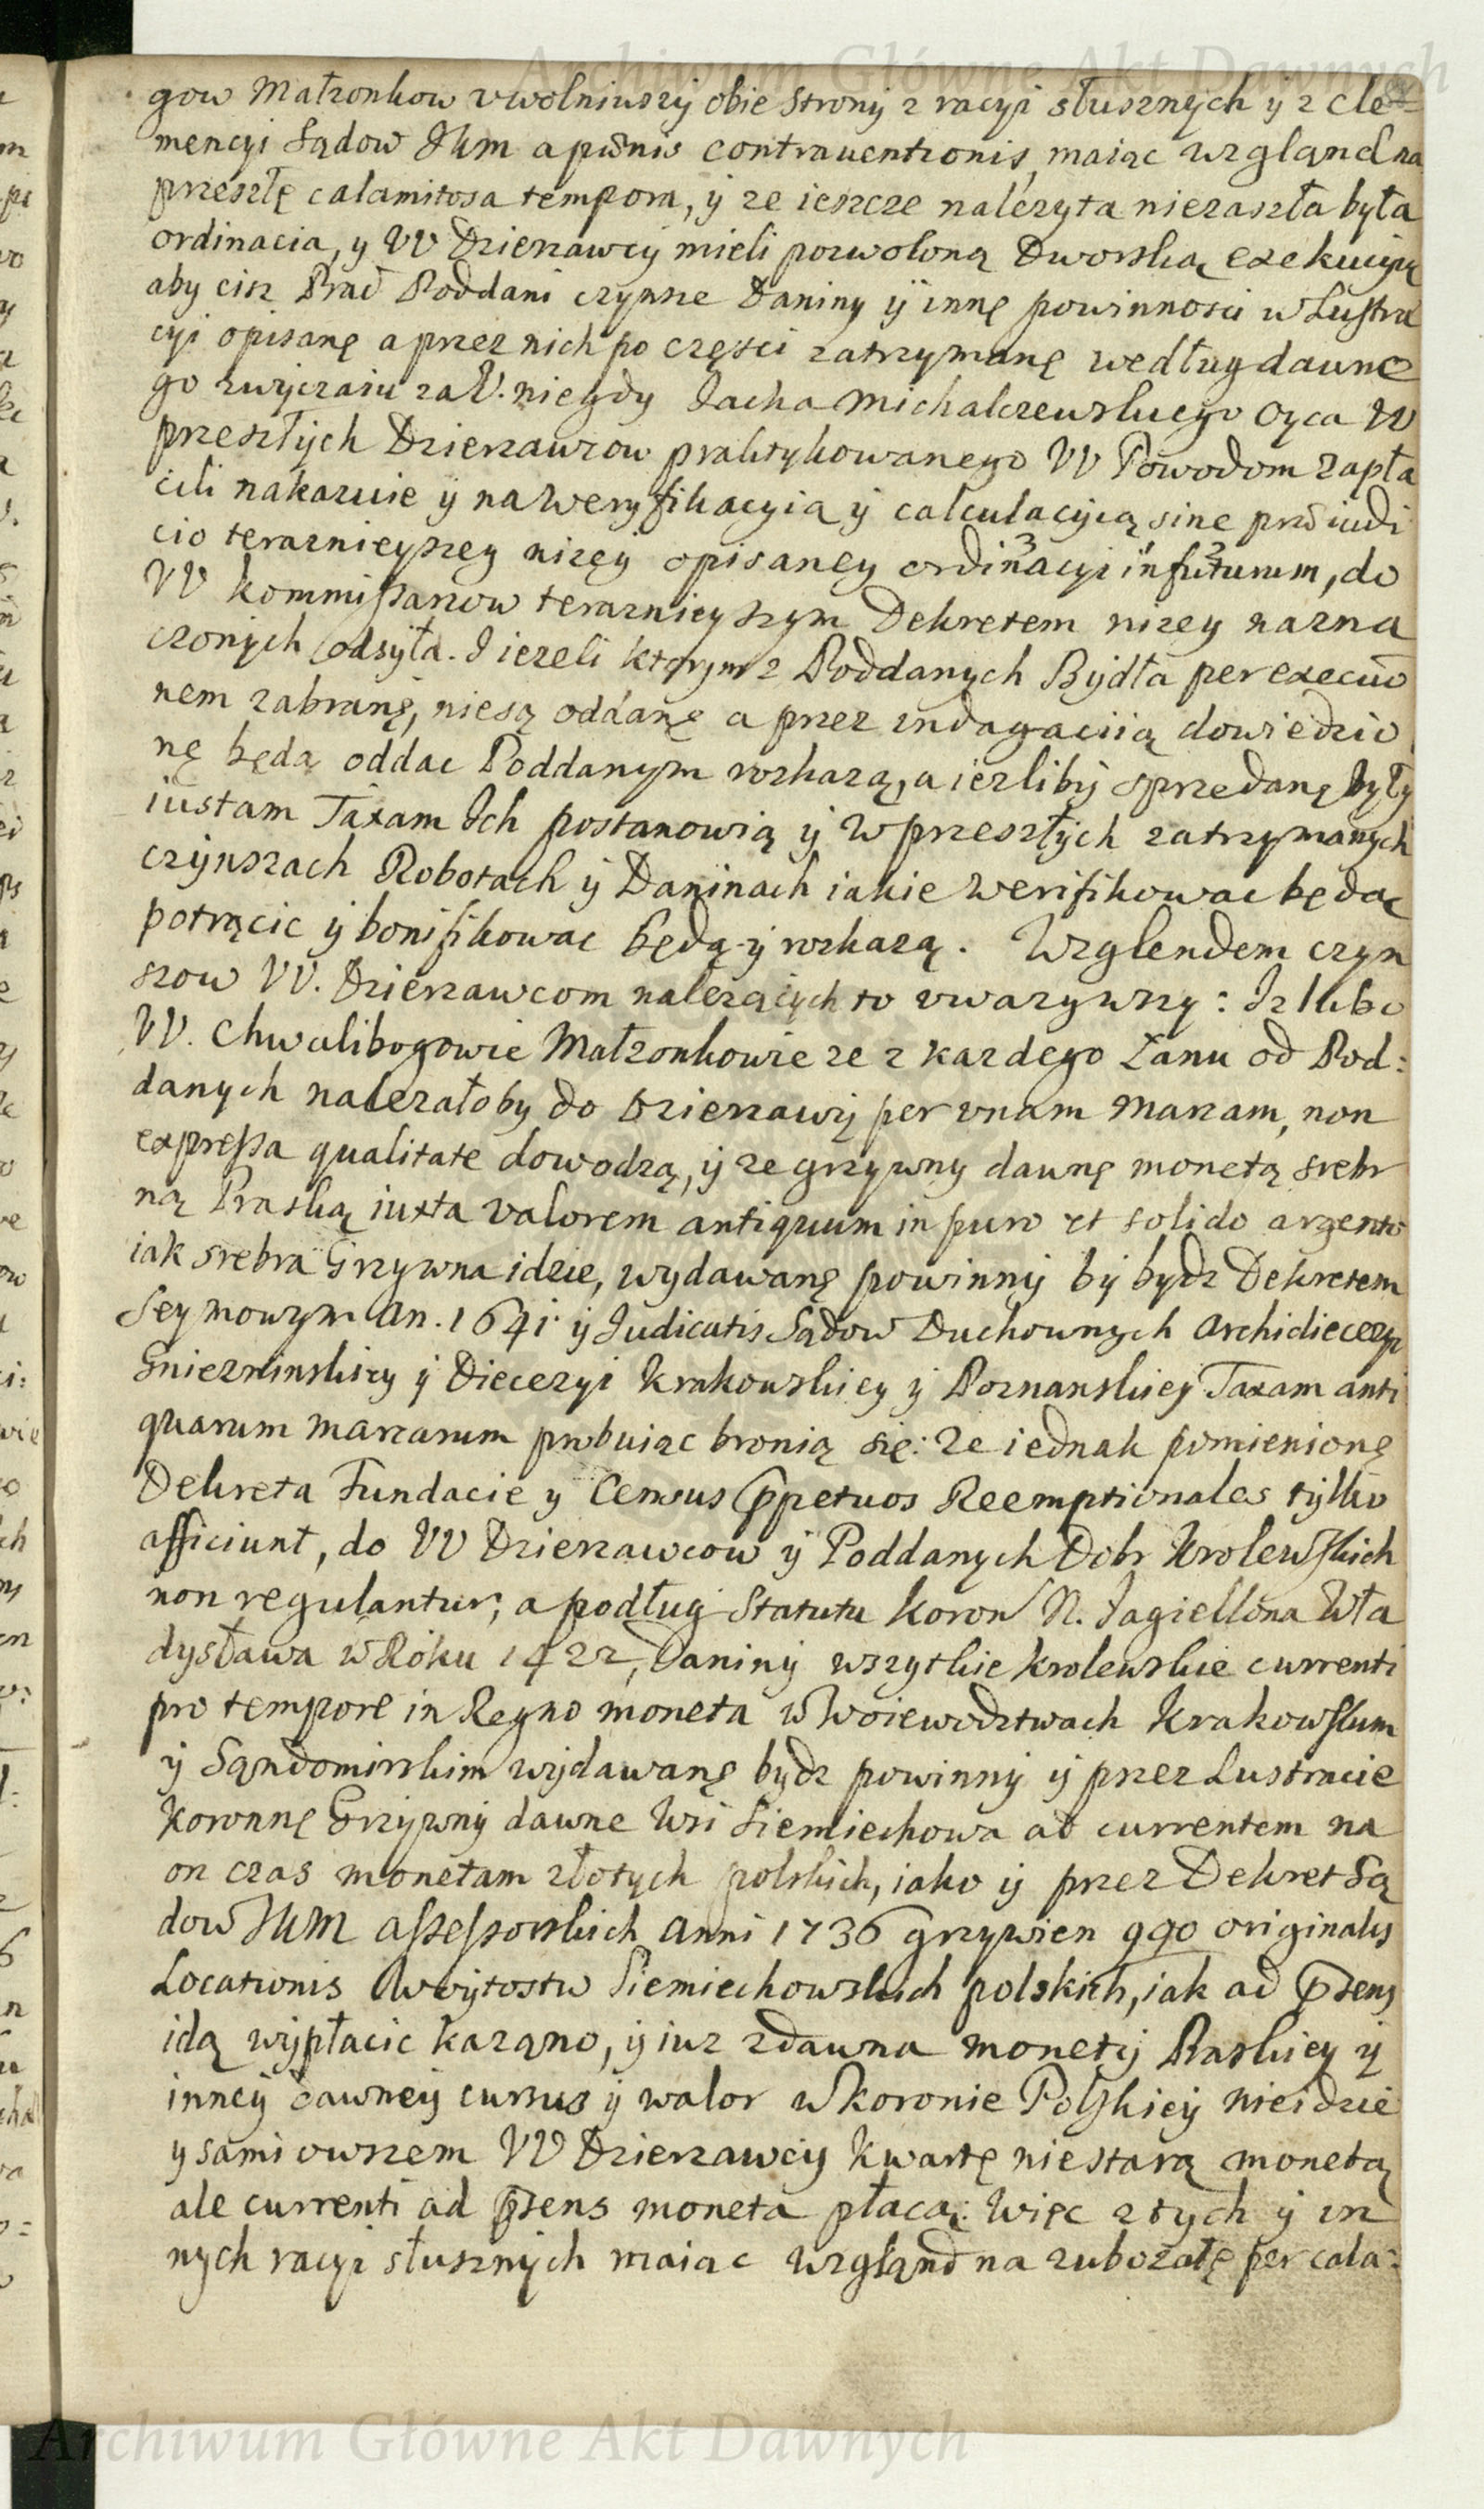 Archiwum Główne Akt Dawnych
gow Małzonkow vwolniwszÿ obie Stronÿ z racyi słusznÿch ÿ z Cle=
mencyi Sądow JKM a pœnis contrauentionis, maiąc wzgląnd na
przeszłę calamitosa tempora, ÿ ze ieszcze nalezyta niezaszła była
ordinacia, y WW Dzierzawcÿ mieli pozwoloną Dworską exekucyią
aby cisz Prac̄ Poddani czynsze Daniny ÿ innę powinnosci w Lustra
cyi opisanę a przez nich po częsci zatrzymanę według dawne
go zwÿczaiu za W. niegdy Jacka Michalczewskiego Oyca W
przeszłÿch Dzierzawcow praktykowanego WW Powodom zapła
cili nakazuie ÿ na Weryfikacyią ÿ calculacÿią sine præiudi
cio teraznieyszey nizęy opisaney ordinacyi in futurum, do
WW Kommissarzow teraznieyszym Dekretem nizey nazna
czonÿch odsyła. J iezeli ktorym z Poddanych Bÿdła per execuo
nem zabranę, niesą oddanę a przez indagaciią dowiedzio
nę będą oddac Poddanym rozkazą, a iezlibÿ sprzedanę były
iustam Taxam Jch postanowią ÿ w przeszłÿch zatrzymanych
czÿnszach Robotach ÿ Daninach iakie werifikowac będąc
potrącic ÿ bonifikowac będą ÿ rozkazą. Wzglendem czyn
szow WW. Dzierzawcom nalezącÿch to vwazywszy: Jz lubo
WW. Chwalibogowie Małzonkowie ze z kazdego Łanu od Pod:
danych nalezałoby do Dzierzawÿ per vnam Marcam, non
expressa qualitate dowodzą, ÿ ze grzywny dawnę monetą srebr
ną Praską iuxta valorem antiquum in puro et solido argento
iak srebra Grzywna idzie, wydawanę powinnÿ bÿ bydz Dekretem
Seymowym An. 1641 ÿ Judicatis Sądow Duchownych Archidiecezyi
Gniezninskiey ÿ Diecezyi Krakowskiey ÿ Poznanskiey Taxam anti
quarum marcarum probuiąc bronią się: Ze iednak pomienionę
Dekreta Fundacie y Census ꝑpetuos Reemptionales tÿlko
afficiunt, do WW Dzierzawcow ÿ Poddanych Dobr Krolewskich
non regulantur, a podług Statutu Koron N. Jagiellona Wła
dysława w Roku 1422, Daninÿ wszytkie krolewskie currenti
pro tempore in Regno moneta w Woiewodztwach Krakowskim
ÿ Sąndomirskim wÿdawanę bydz powinnÿ ÿ przez Lustracie
Koronnę Grzÿwnÿ dawne Wsi Siemiechowa ad currentem na
on czas monetam złotych polskich, iako ÿ przez Dekret Są
dow JKM assessorskich Anni 1736 grzywien 990 originalis
Locationis Woÿtostw Siemiechowskich polskich, iak ad p̄sens
idą wÿpłacic kazano, ÿ iuz zdawna monetÿ Praskiey ÿ
inneÿ dawneÿ cursus ÿ walor w Koronie Polskieÿ nieidzie
y sami owszem WW Dzierzawcÿ Kwartę nie starą monetą
ale currenti ad p̄sens moneta płacą: Więc z tych ÿ in
nych racyi słusznÿch maiąc wzgląnd na zubozałę per cala:
Archiwum Główne Akt Dawnych